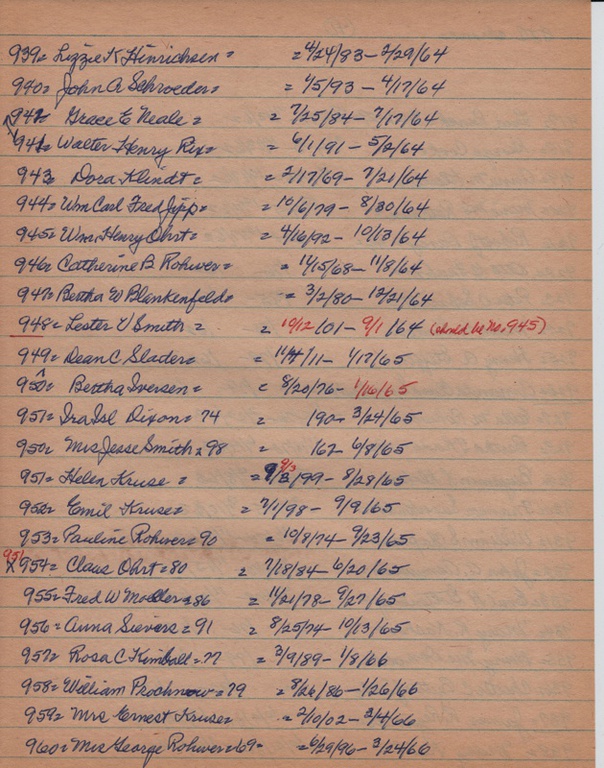 939= Lizzie K Hinrichsen = = 4/24/83 - 2/29/64
940= John A Schroeder = = 1/5/93 - 4/17/64
942 Grace E Neale = = 7/25/84 - 7/17/64
941= Walter Henry Rix = = 6/1/91 - 5/2/64
943= Dora Klindt = = 2/17/69 - 7/21/64
944= Wm Carl Fred Jipp = = 10/6/79 - 8/30/64
945= Wm. Henry Ohrt = = 4/16/92 - 10/13/64
946= Cattherine B. Rohwer = = 11/15/68 - 11/8/64
947= Bertha W Blankenfeld = = 3/2/80 - 12/21/64
948= Lester V Smith = = 10/12/01 - 9/1/64 (should be No. 945)
949= Dean C Slader = = 11/4/11 - 1/17/65
950= Bertha Iversen = = 8/20/76 - 1/16/65
951= Ira Isl Dixon = 74 = 190 - 3/24/65
950= Mrs Jesse Smith = 98 = 162 - 6/8/65
951= Helen Kruse = = 9/3/99 - 8/28/65 9/3
952= Emil Kruse = = 7/1/98 - 9/9/65
953= Pauline Rohwer = 90 = 10/8/74 - 9/23/65
951 X 954= Claus Ohrt = 80 = 7/18/84 - 6/20/65
955= Fred W Moeller = 86 = 11/21/78 - 9/27/65
956= Anna Sievers = 91 = 8/25/74 - 10/13/65
957= Rosa C Kimball = 77 = 3/9/89 - 1/8/66
958= William Prochnow = 79 = 8/26/86 - 1/26/66
959= Mrs Ernest Kruse = = 2/10/02 - 3/4/66
960= Mrs George Rohwer = 69 = = 6/29/96 - 3/24/66